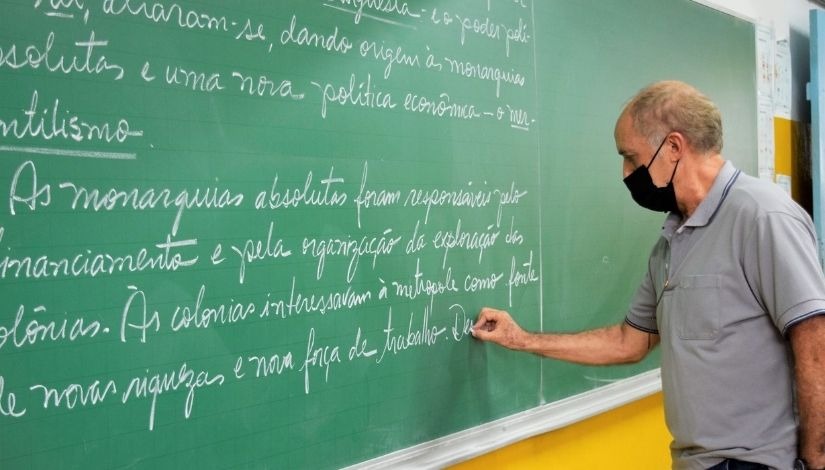 rei, aliaram-se, dando origem às monarquias
e o poder polí-
solutas e uma nova política econômica - o mer-
ntilismo.
As monarquias absolutas foram responsáveis pelo
inanciamento e pela organização da exploração das
olônias. As colonias interessavam à metrópole como fonte
de novas riquezas e nova força de trabalho.